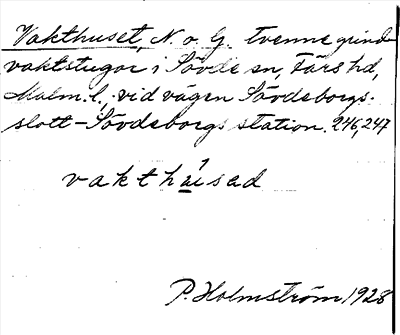 Vakthuset, N. o. G. tvenne grind-
vaktstugor i Sövde sn, Färs hd,
Malm. l., vid vägen Sövdeborgs-
slott - Sövdeborgs station. 246, 247
vakthúsad
P. Holmström 1928